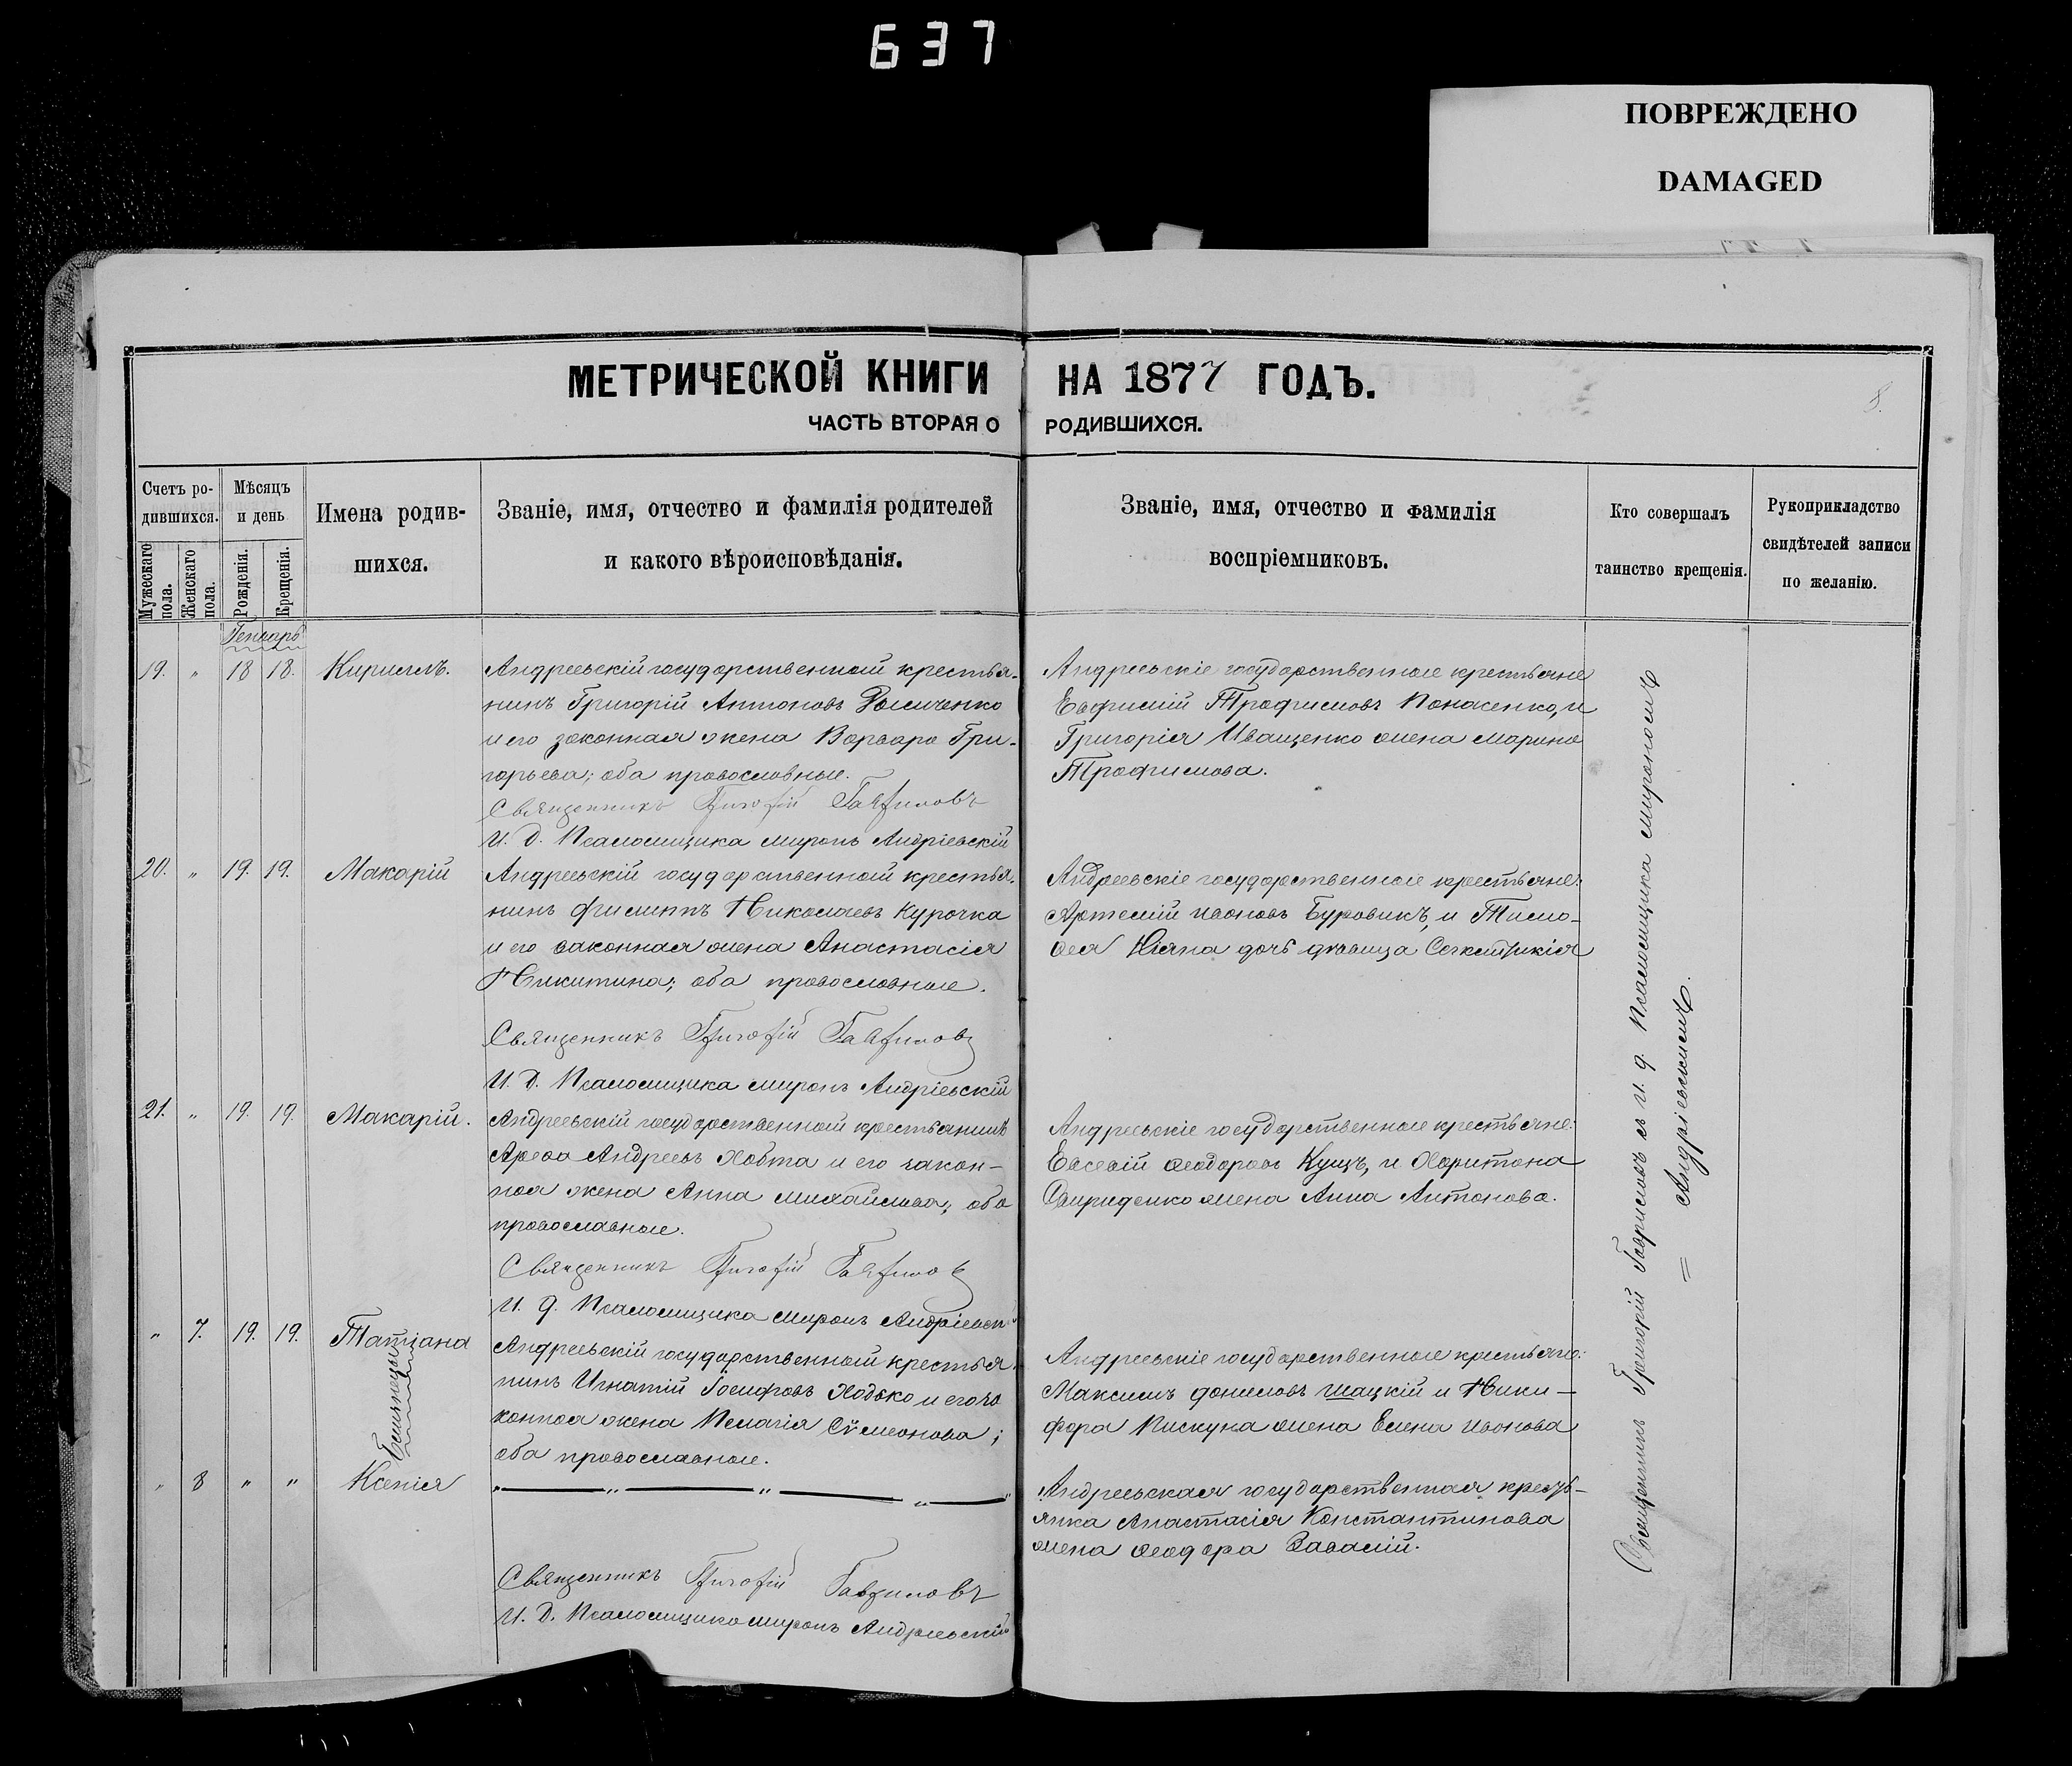 637
ПОВРЕЖДЕНО
DAMAGED
МЕТРИЧЕСКОЙ КНИГИ НА 1877 ГОДЪ.
ЧАСТЬ ВТОРАЯ О РОДИВШИХСЯ.
8.
Счетъ ро-
дившихся.
Мужескаго пола.
Женскаго пола.
Мѣсяцъ
и день
Рожденія.
Крещенія.
Имена родив-
шихся.
Званіе, имя, отчество и фамилія родителей
и какого вѣроисповѣданія.
Званіе, имя, отчество и фамилія
воспріемниковъ.
Кто совершалъ
таинство крещенія.
Рукоприкладство
свидѣтелей записи
по желанію.
Генварь
19. " 18 18. Кириллъ.
Андреевскій государственный крестья-
нинъ Григорій Антоновъ
и его законная жена Варвара Гри-
горьева; оба православные.
Священникъ Григорій Гавриловъ
И. Д. Псаломщика Миронъ Андріевскій
Андреевскіе государственные крестьяне
Евфимій Трофимовъ Понасенко, и
Григорія Иващенко жена Марина
Трофимова.
20. " 19. 19. Макарій
Андреевскій государственный крестья-
нинъ Филиппъ Николаевъ Курочка
и его законная жена Анастасія
Никитина; оба православные.
Священникъ Григорій Гавриловъ
И. Д. Псаломщика Миронъ Андріевскій
Андреевскіе государственные крестьяне:
Артемій Ивановъ Буровикъ, и Тимо-
ѳея дочь дѣвица
21. " 19. 19. Макарій.
Андреевскій государственный крестьянинъ
Арефа Андреевъ Ховта и его закон-
ная жена Анна Михайлова; оба
православные.
Священникъ Григорій Гаврилов
И. Д. Псаломщика Миронъ Андріевск
Андреевскіе государственные крестьяне:
Евсевій Ѳеодоровъ Кущъ, и Харитона
Свириденко жена Анна Антонова.
" 7. 19. 19. Татіана
Близнецы
Андреевскій государственный крестья-
нинъ Игнатій Іосифовъ Ходько и его за
конная жена Пелагія Сѵмеонова;
оба православные.
Андреевскіе государственные крестьяне:
Максимъ Даниловъ Шацкій и Ники-
фора Пискуна жена Елена Иванова
" 8 " " Ксенія
" " " " "
Священникъ Григорій Гавриловъ
И. Д. Псаломщика Миронъ Андріевскій
Андреевская государственная кресть-
янка Анастасія Константинова
жена Ѳеодора
Священникъ Григорій Гавриловъ съ и. д. Псаломщика Мирономъ
= Андріевскимъ.